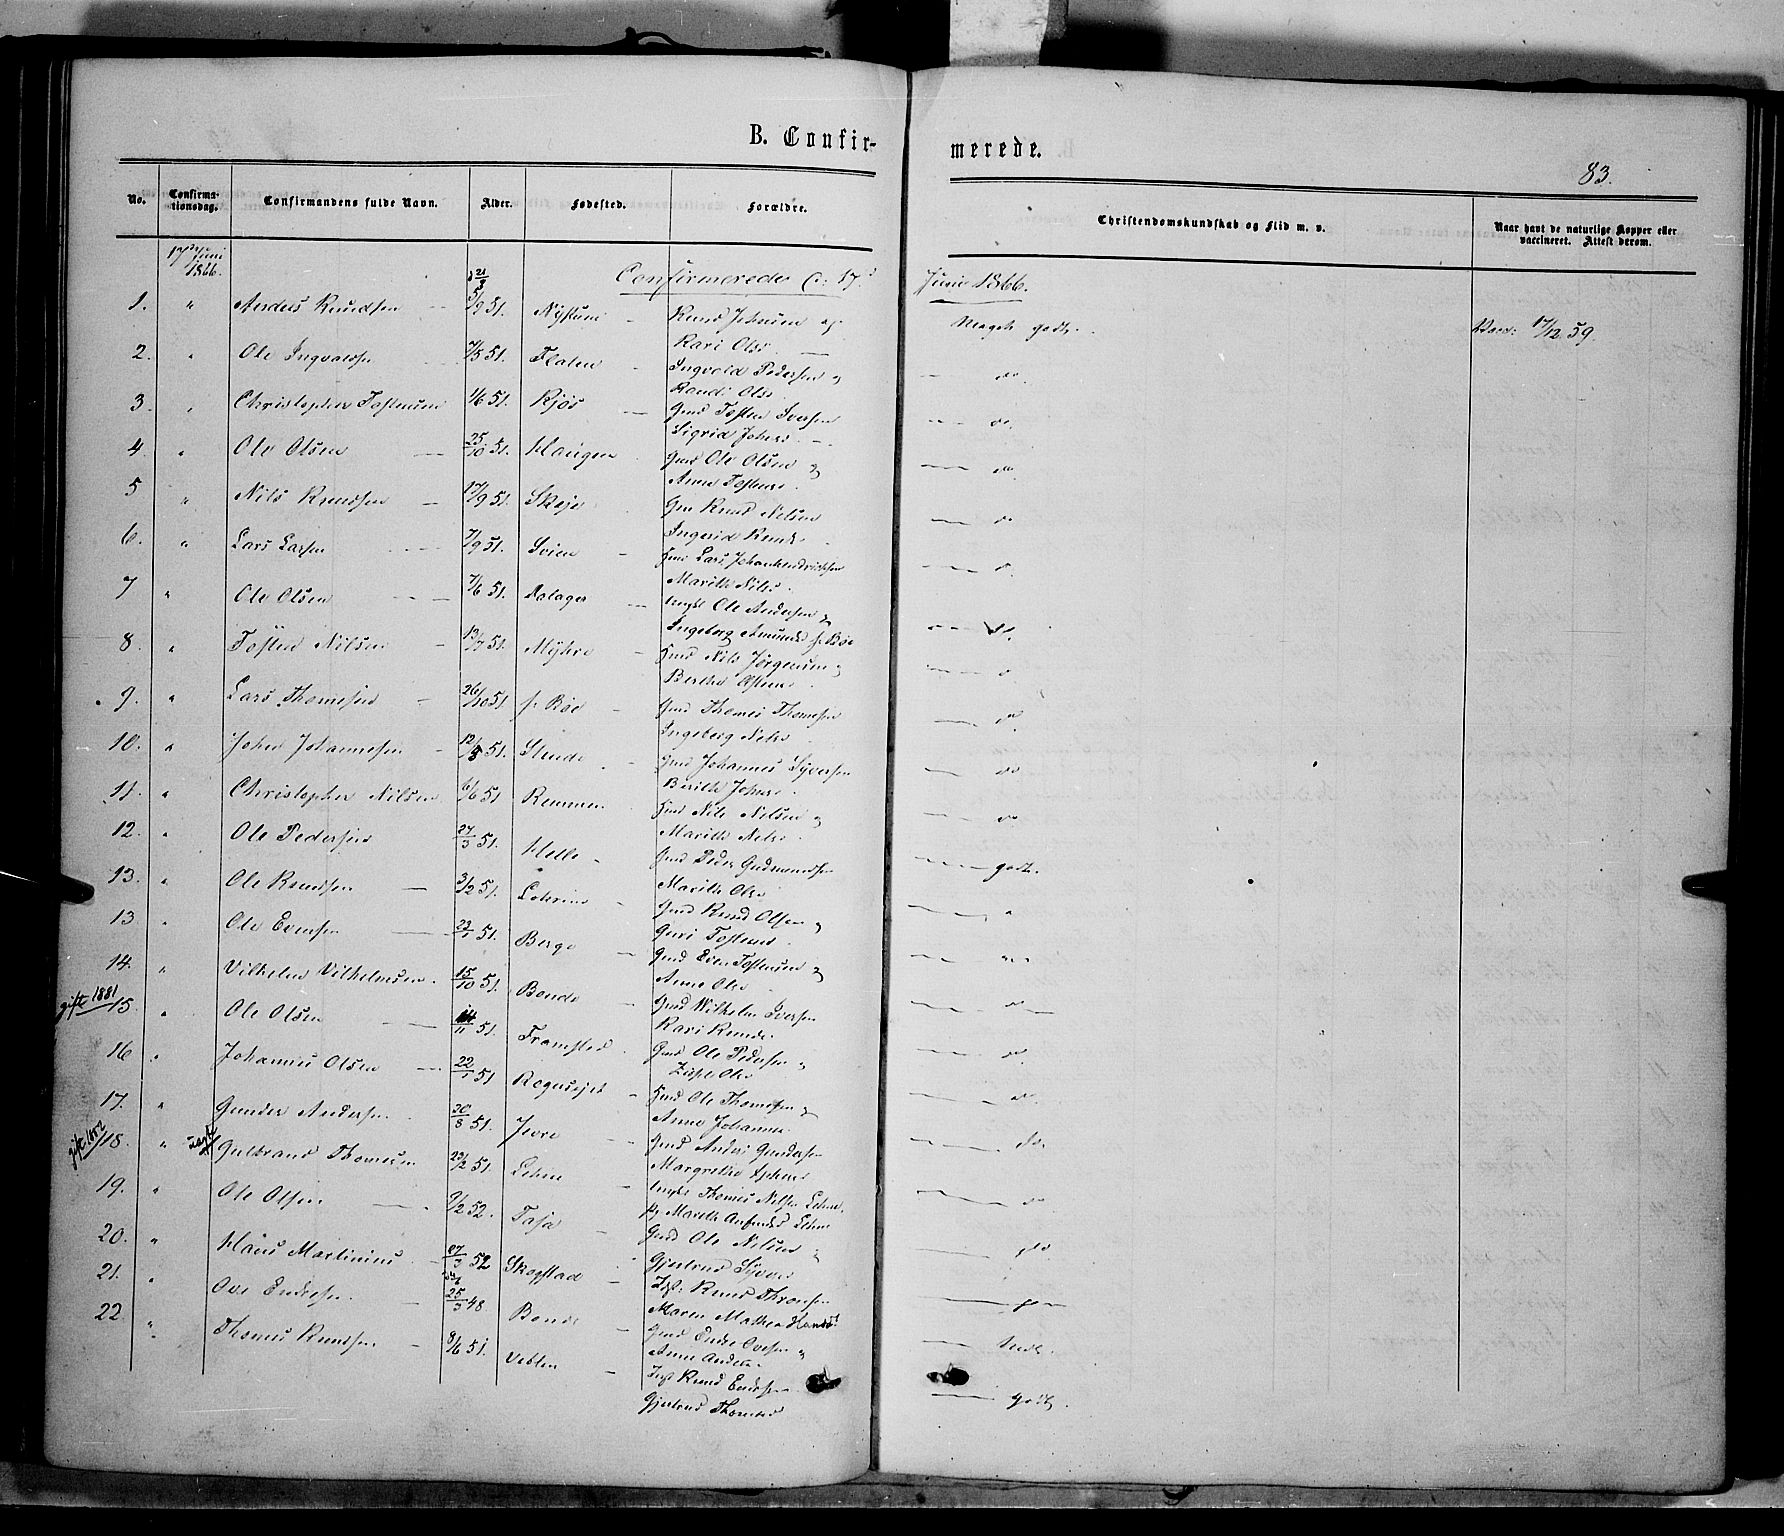 B. Confir-
merede.
83.
No.
Confirma-
tionsdag.
Confirmandens fulde Navn.
Alder.
Fødested.
Forældre.
Christendomskundskab og Flid m. v.
Naar havt de naturlige Kopper eller
vaccineret. Attest derom.
17 Juni
1866.
Confirmerede
Juni 1866.
1. " Anders Knudsen 5/9 51. Nystuen Knud Johnsen og Meget godt. 17/12 59.
Kari Olsd
2. " Ole Ingvaldsen 7/5 51. Flaten Ingvald Pedersen og do.
Randi Olsd
3. " Christopher Tostensen 1/6 51. Kjøs Gmd Tosten Iversen do.
Sigrid Johnsd.
4. " Ole Olsen 25/10 51. Haugen Gmd Ole Olsen og do
Anne Tostensd.
5 " Nils Knudsen 17/9 51. Skeje Knud Nilsen do
Ingerid Knudsd.
6. " Lars Larsen 7/9 51. Svien Lars Johanhendricksen
Marith Nilsd.
7 " Ole Olsen 7/6 51. Dalager Ole Andersen og
Ingeborg Amundsd
8. " Tosten Nilsen 13/7 51. Myhre Nils Jørgensen og
Berthe
9. " Lars Thomesen 26/10 51. Bøe Gmd Thomes Thomesen
Ingeborg Nilsd
10. " John Johannesen 12/8 51. Stende Gmd Johannes Syversen do
Berith Johnsd.
11. " Christopher Nilsen 6/6 51 Remmen Nils Nilsen og do
Marith Nilsd.
12. " Ole Pedersen 27/3 51. Helle Gmd Peder Gudmundsen godt.
Marith Olsd
13. " Ole Knudsen 3/2 51. Lohrine Gmd Knud Olsen og "
Guri Tostensd.
13. " Ole Evensen 51. Berge Gmd Even Tostensen og
Anne Olsd
14. " Vilhelm Vilhelmsen. 15/10 51. Bonde Gmd Wilhelm Iversen do
Kari Knudsd.
gift 1881
15. " Ole Olsen 14/11 51. Framstad Gmd Ole Pedersen og do
Olsd
16 " Johannes Olsen 51 Rognsejet Ole Thomesen og do.
Anne Johannesd
17. " Gunder Andersen 30/8 51. Jevre Gmd Anders Gundersen do.
Margrethe
gift 1882
18. " Gulbrand Thomesen 23/2 51. Lehne Thomes Nilsen Lehne do
Marith Lehne
19. " Ole Olsen 9/2 52. Taja Gmd Ole Nilsen og do
Gjertrud
20. " Hans Martinius 27/3 52 Skogstad Knud Thronsen
Maren Mathea
21. " Ove Endresen 25/3 48. Bonde Gmd Endre Ovesen og
Anne Andersd.
22. " Thomes Knudsen 8/6 51. Veblen Knud Endresen godt.
Gjertrud Thomesd